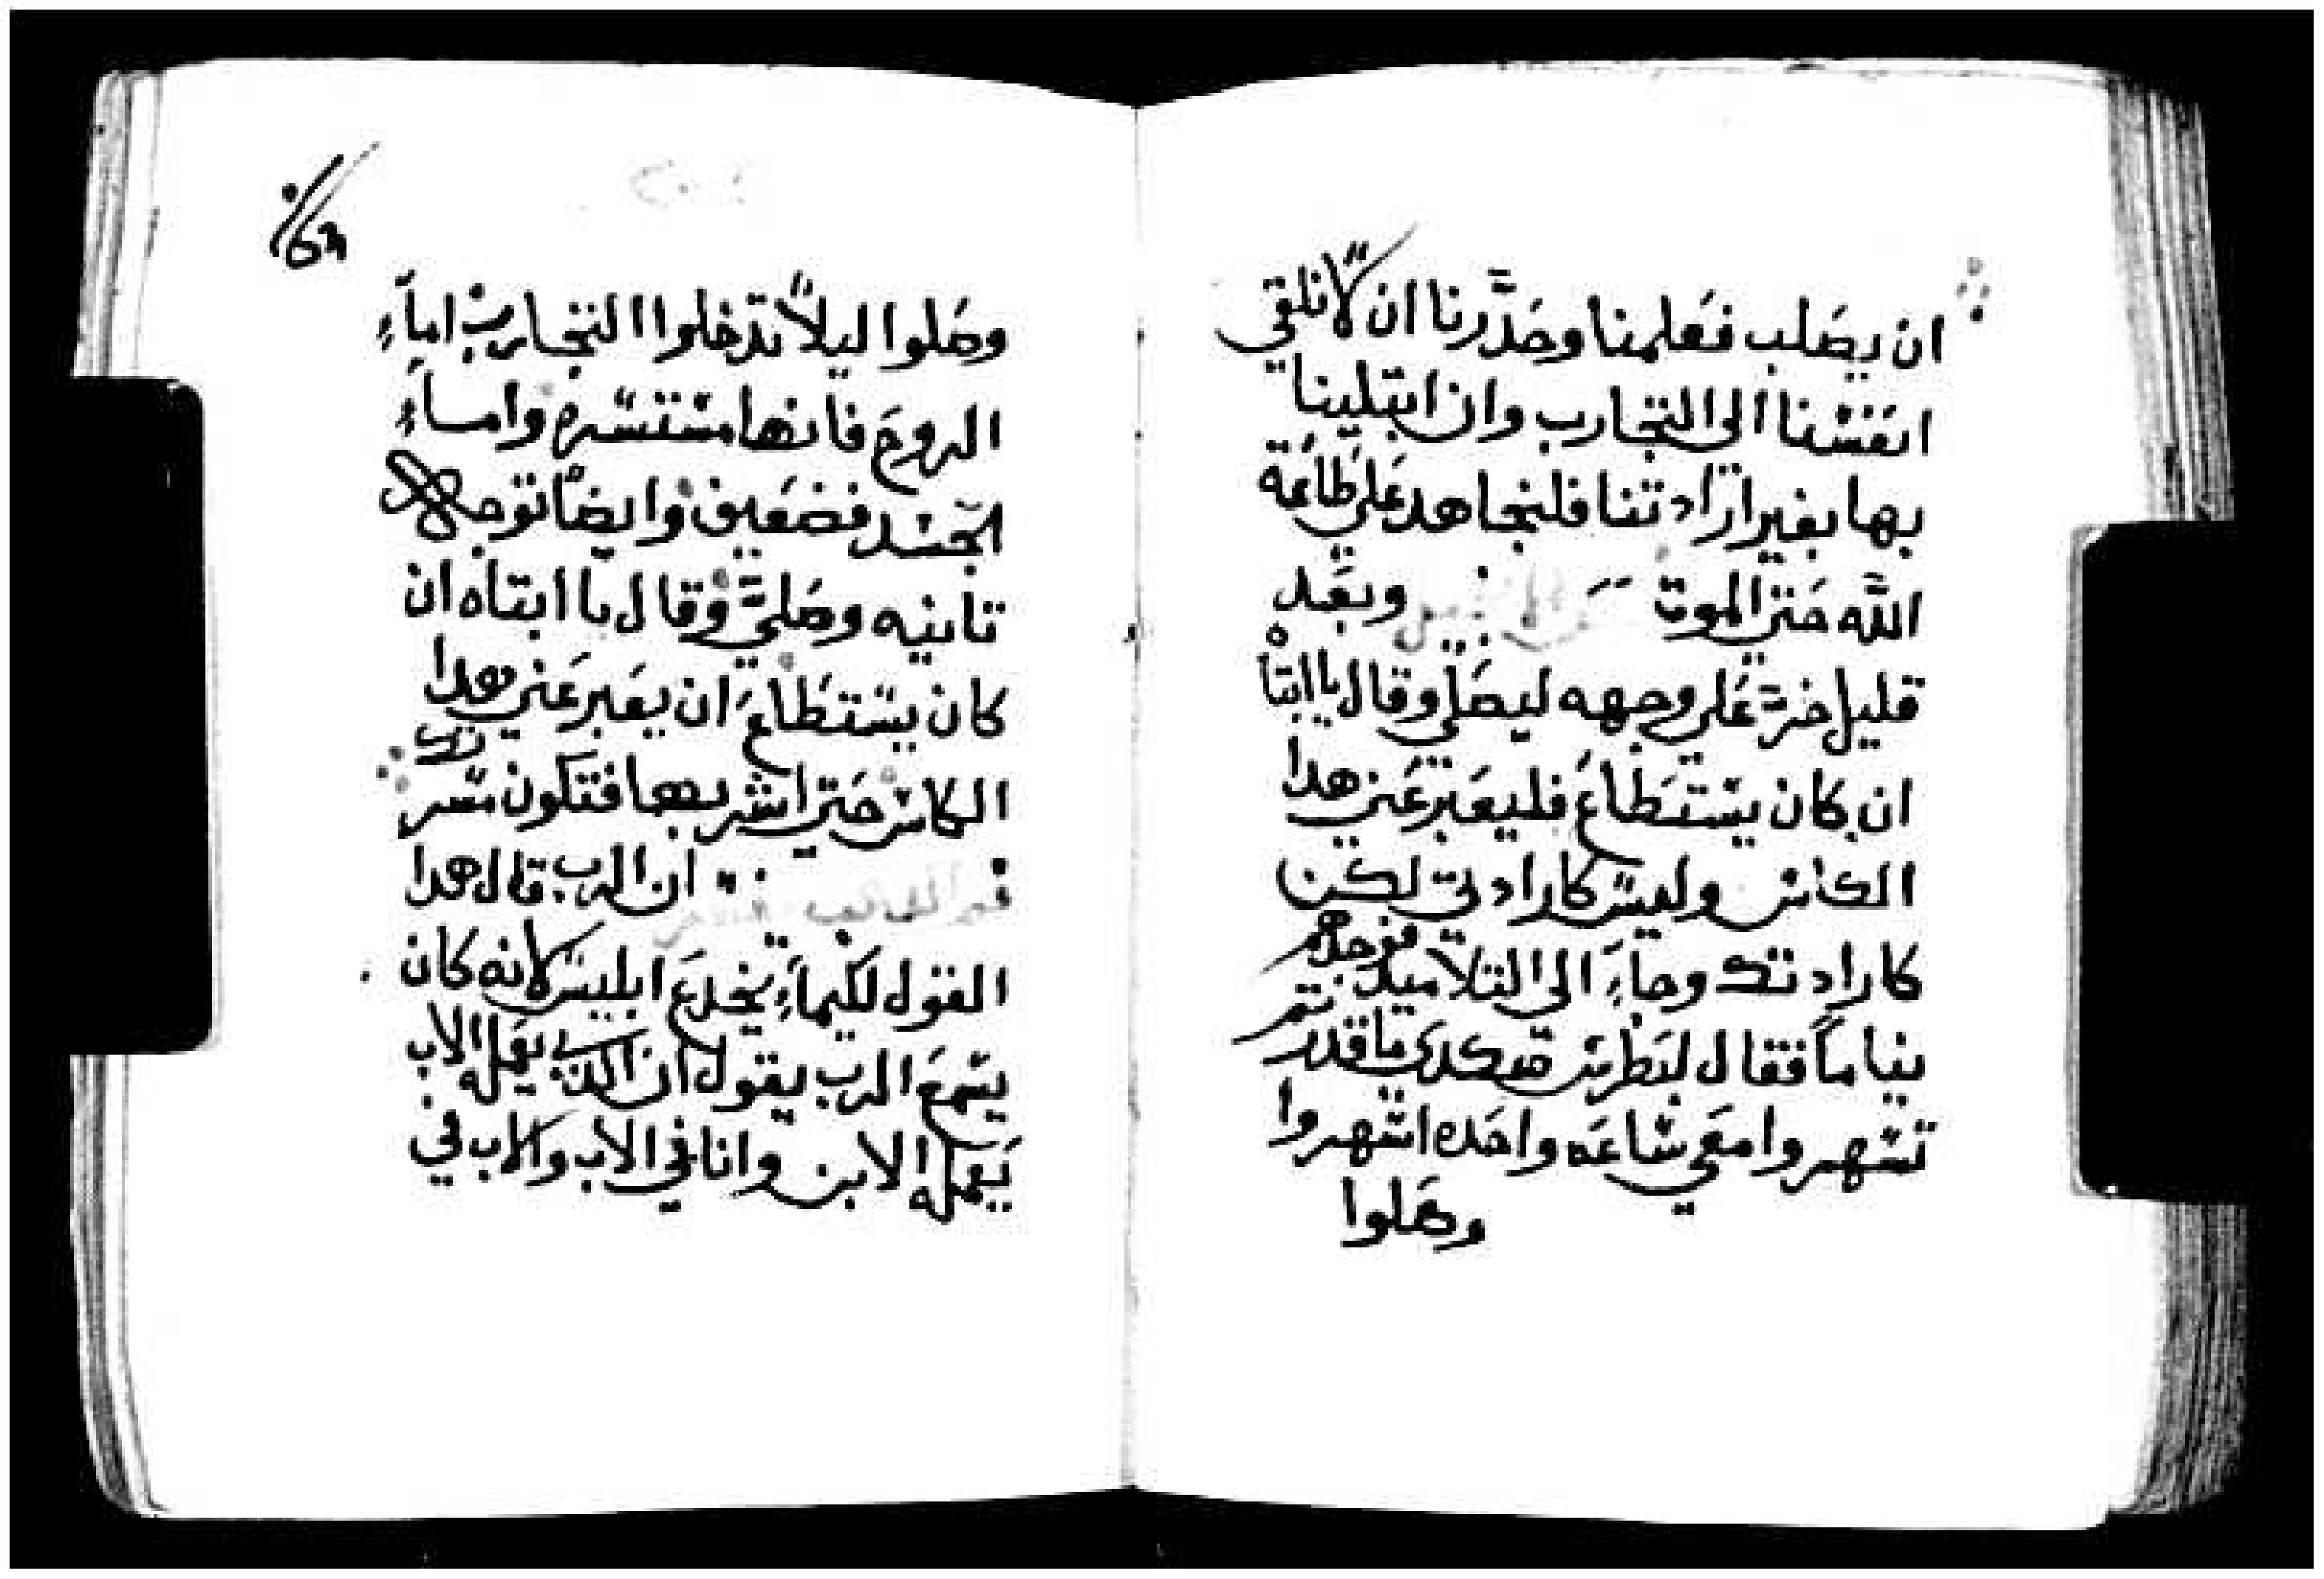 ان يصلب فعلمنا وحدرنا ان لا نلقي
انفسنا الى التجارب وان ابتلينا
بها بغير ارادتنا فلنجاهد علي طاعة
الله حتي الموت وبعد
قليل خر علي وجهه ليصلي وقال يا ابتاه
ان كان يستطاع فليعبر عني هدا
الكاس وليس كارادتي لكن
كارادتك وجاء الى التلاميد فوجدهم
نياما فقال لبطرس هكدي ما قدرتم
تسهروا معي ساعه واحده اسهروا
وصلوا
وصلوا ليلا تدخلوا التجارب اماء
الروح فانها مستبشره واماء
الجسد فضعيف وايضا توجه
تانيه وصلي وقال يا ابتاه ان
كان يستطاع ان يعبر عني هدا
الكاس حتي اشربها فتكون مسرتك
ان الرب قال هدا
القول لكيماء يخدع ابليس لانه كان
يسمع الرب يقول ان الدي يعمله الاب
يعمله الابن وانا في الاب والاب في